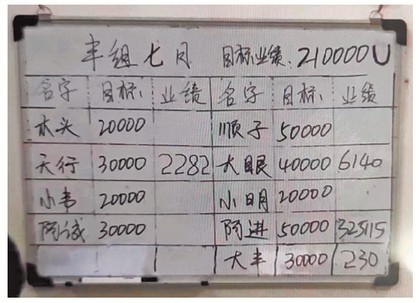 丰组七月 目标业绩:210000U
名字 目标: 业绩 名字 目标: 业绩
木头 20000 顺子 50000
天行 30000 2282 大眼 40000 6140
小韦 20000 小明 20000
阿诚 30000 阿进 50000 32515
大丰 30000 230